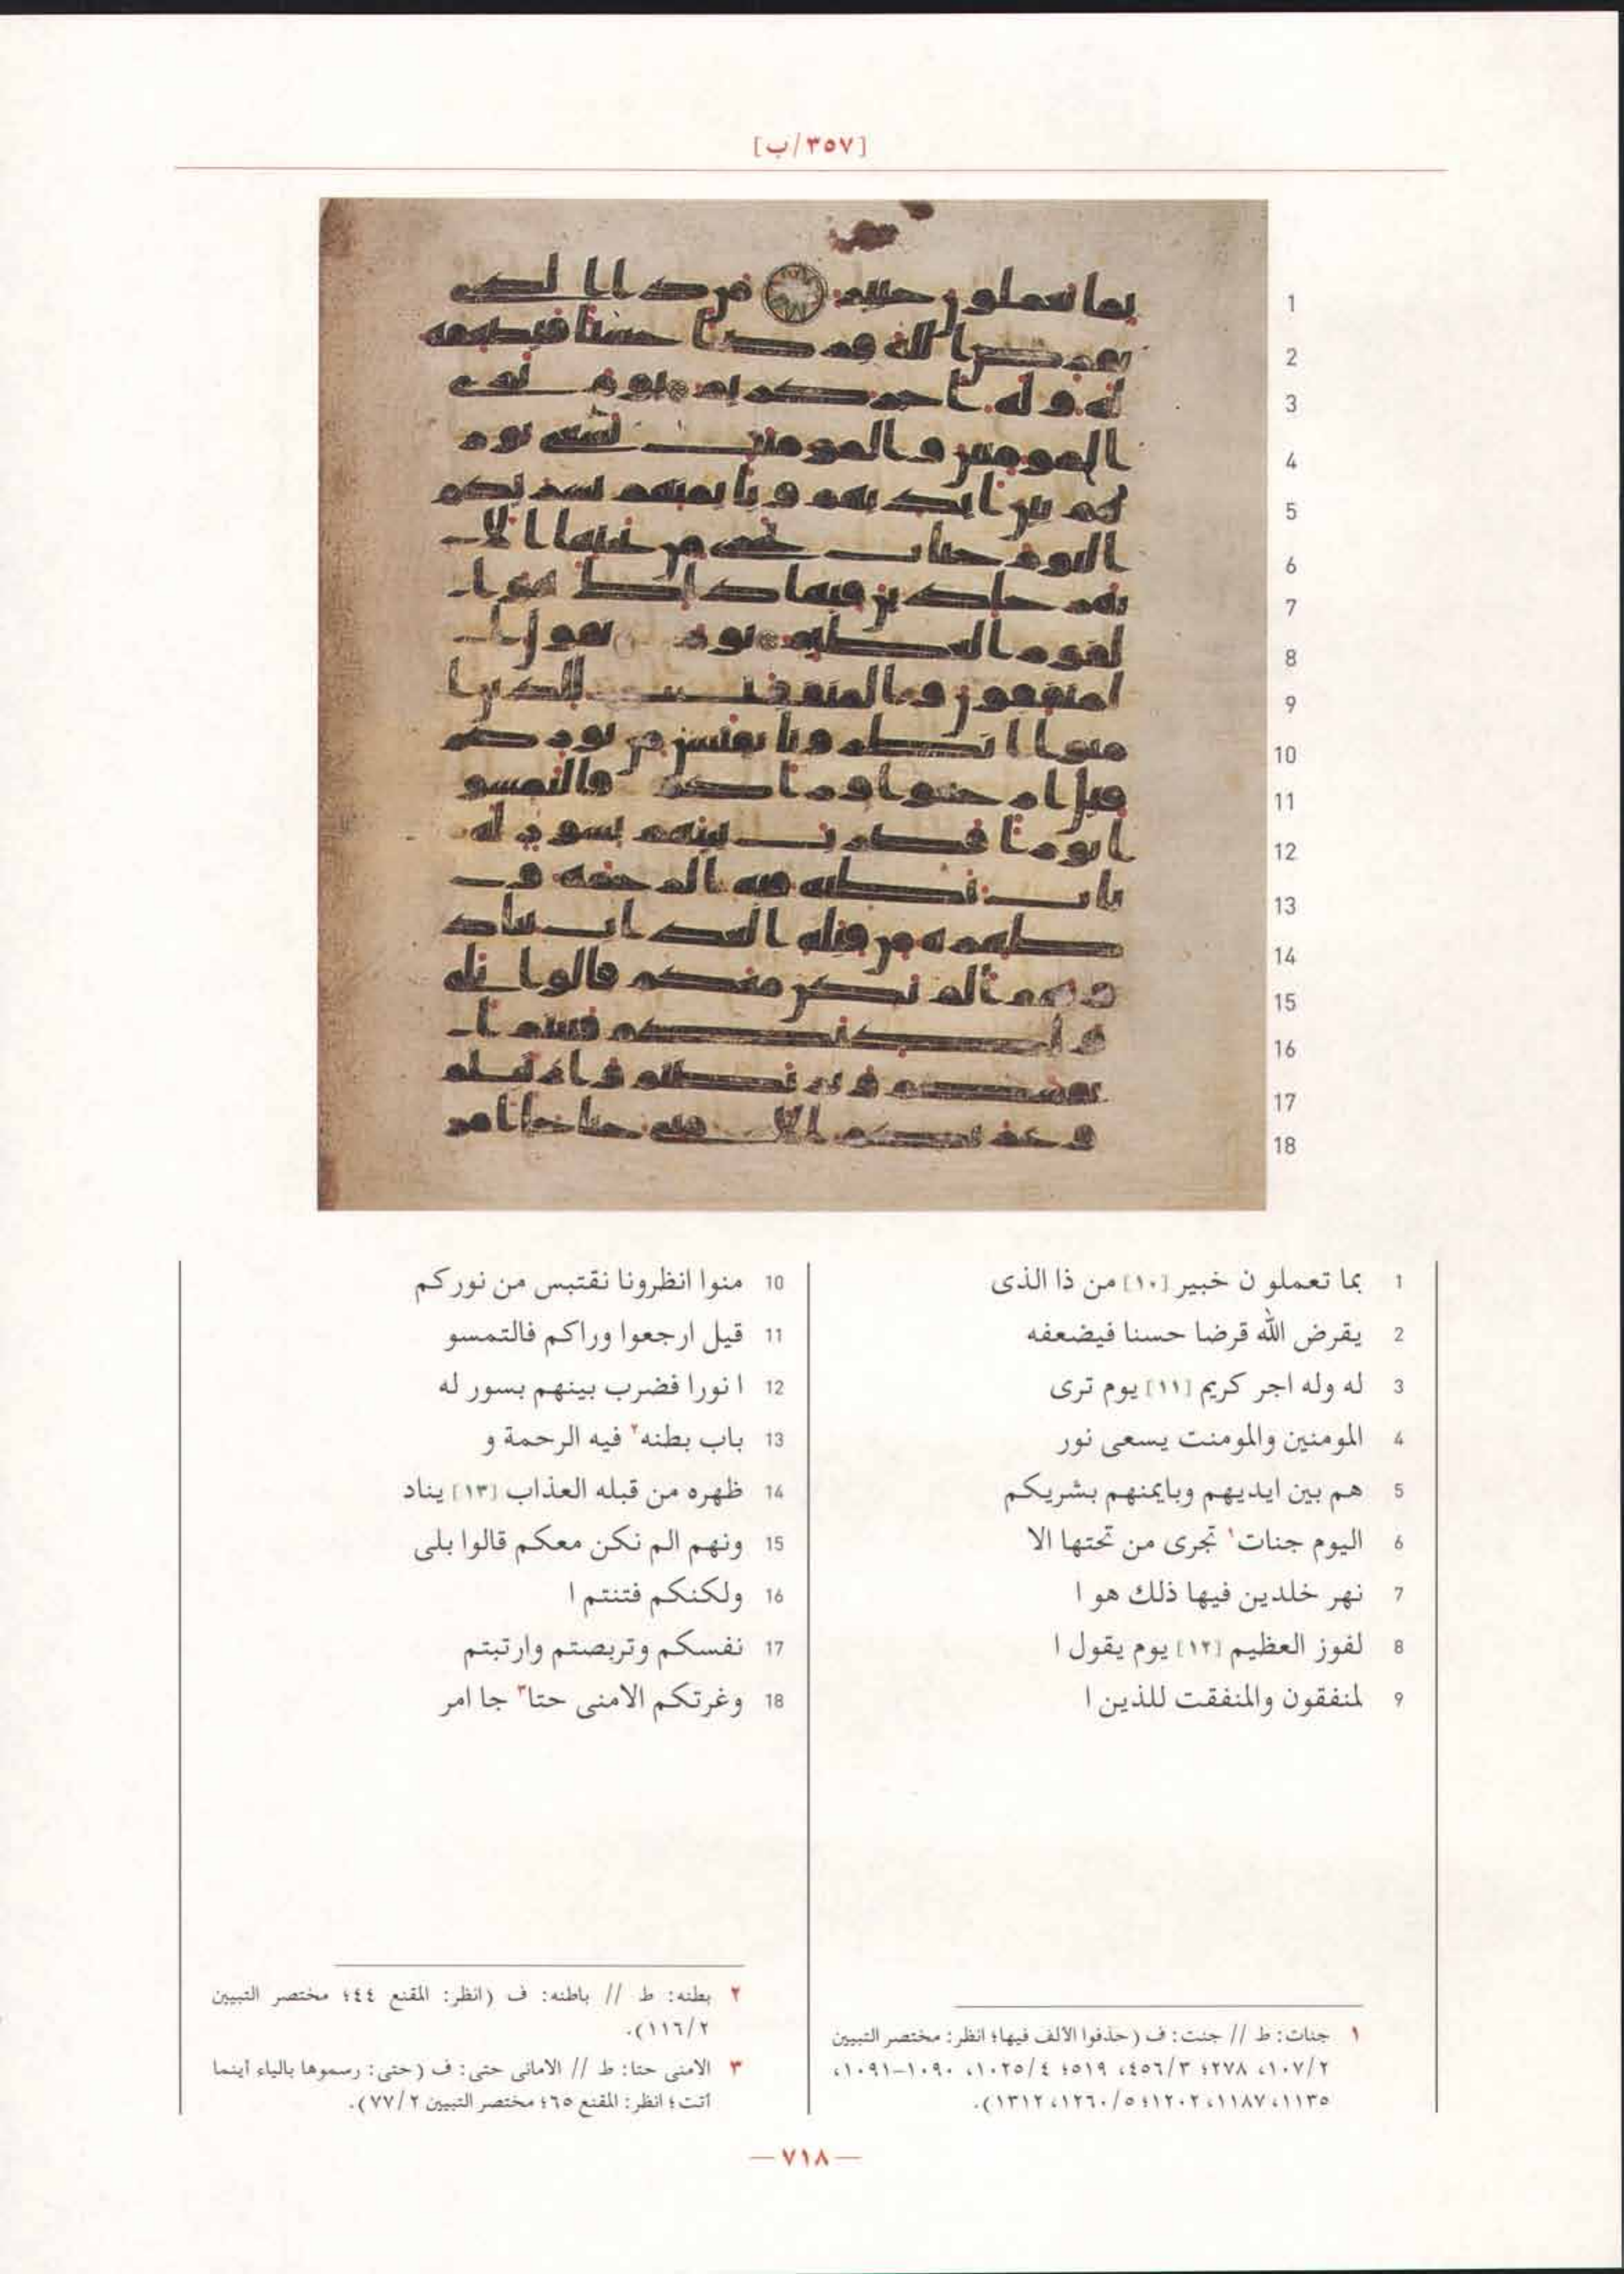 [٣٥٧/ب]
1
2
3
4
5
6
7
8
9
10
11
12
13
14
15
16
17
18
1 بما تعملو ن خبير [١٠] من ذا الذى
2 يقرض الله قرضا حسنا فيضعفه
3 له وله اجر كريم [١١] يوم ترى
4 المومنين والمومنت يسعى نور
5 هم بين ايديهم وبايمنهم بشريكم
6 اليوم جنات١ تجرى من تحتها الا
7 نهر خلدين فيها ذلك هو ا
8 لفوز العظيم [١٢] يوم يقول ا
9 لمنفقون والمنفقت للذين ا
10 منوا انظرونا نقتبس من نوركم
11 قيل ارجعوا وراكم فالتمسو
12 ا نورا فضرب بينهم بسور له
13 باب بطنه٢ فيه الرحمة و
14 ظهره من قبله العذاب [١٣] يناد
15 ونهم الم نكن معكم قالوا بلى
16 ولكنكم فتنتم ا
17 نفسكم وتربصتم وارتبتم
18 وغرتكم الامنى حتا٣ جا امر
١ جنات: ط // جنت: ف (حذفوا الألف فيها؛ انظر: مختصر التبيين
١٠٧/٢، ٢٧٨؛ ٤٥٦/٣، ٥١٩؛ ١٠٢٥/٤، ١٠٩٠-١٠٩١،
١١٣٥، ١١٨٧، ١٢٠٢؛ ١٢٦٠/٥، ١٣١٢).
٢ بطنه: ط // باطنه: ف (انظر: المقنع ٤٤؛ مختصر التبيين
١١٦/٢).
٣ الامنى حتا: ط // الامانى حتى: ف (حتى: رسموها بالياء أينما
أتت؛ انظر: المقنع ٦٥؛ مختصر التبيين ٧٧/٢).
— ٧١٨ —